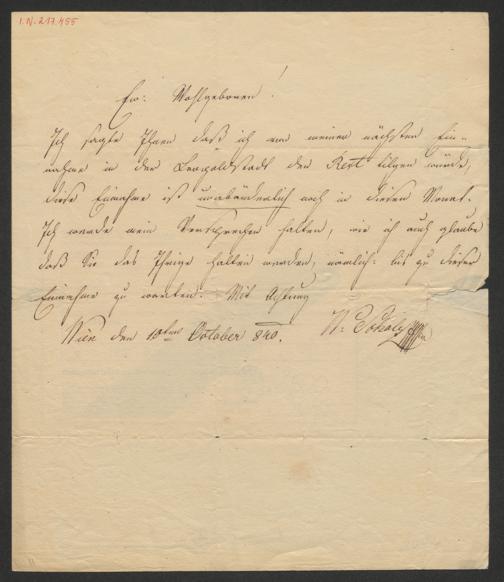 I.N. 217.455
Ew: Wohlgeboren!
Ich sagte Ihnen daß ich von meiner nächsten Ein-
nahme in der Leopoldstadt den Rest tilgen würde,
diese Einnahme ist unabänderlich noch in diesem Monat.
Ich werde mein Versprechen halten, wie ich auch glaube
daß Sie das Ihrige halten werden, nämlich: bis zu dieser
Einnahme zu warten. Mit Achtung
Wien den 10ten October 840.
W.